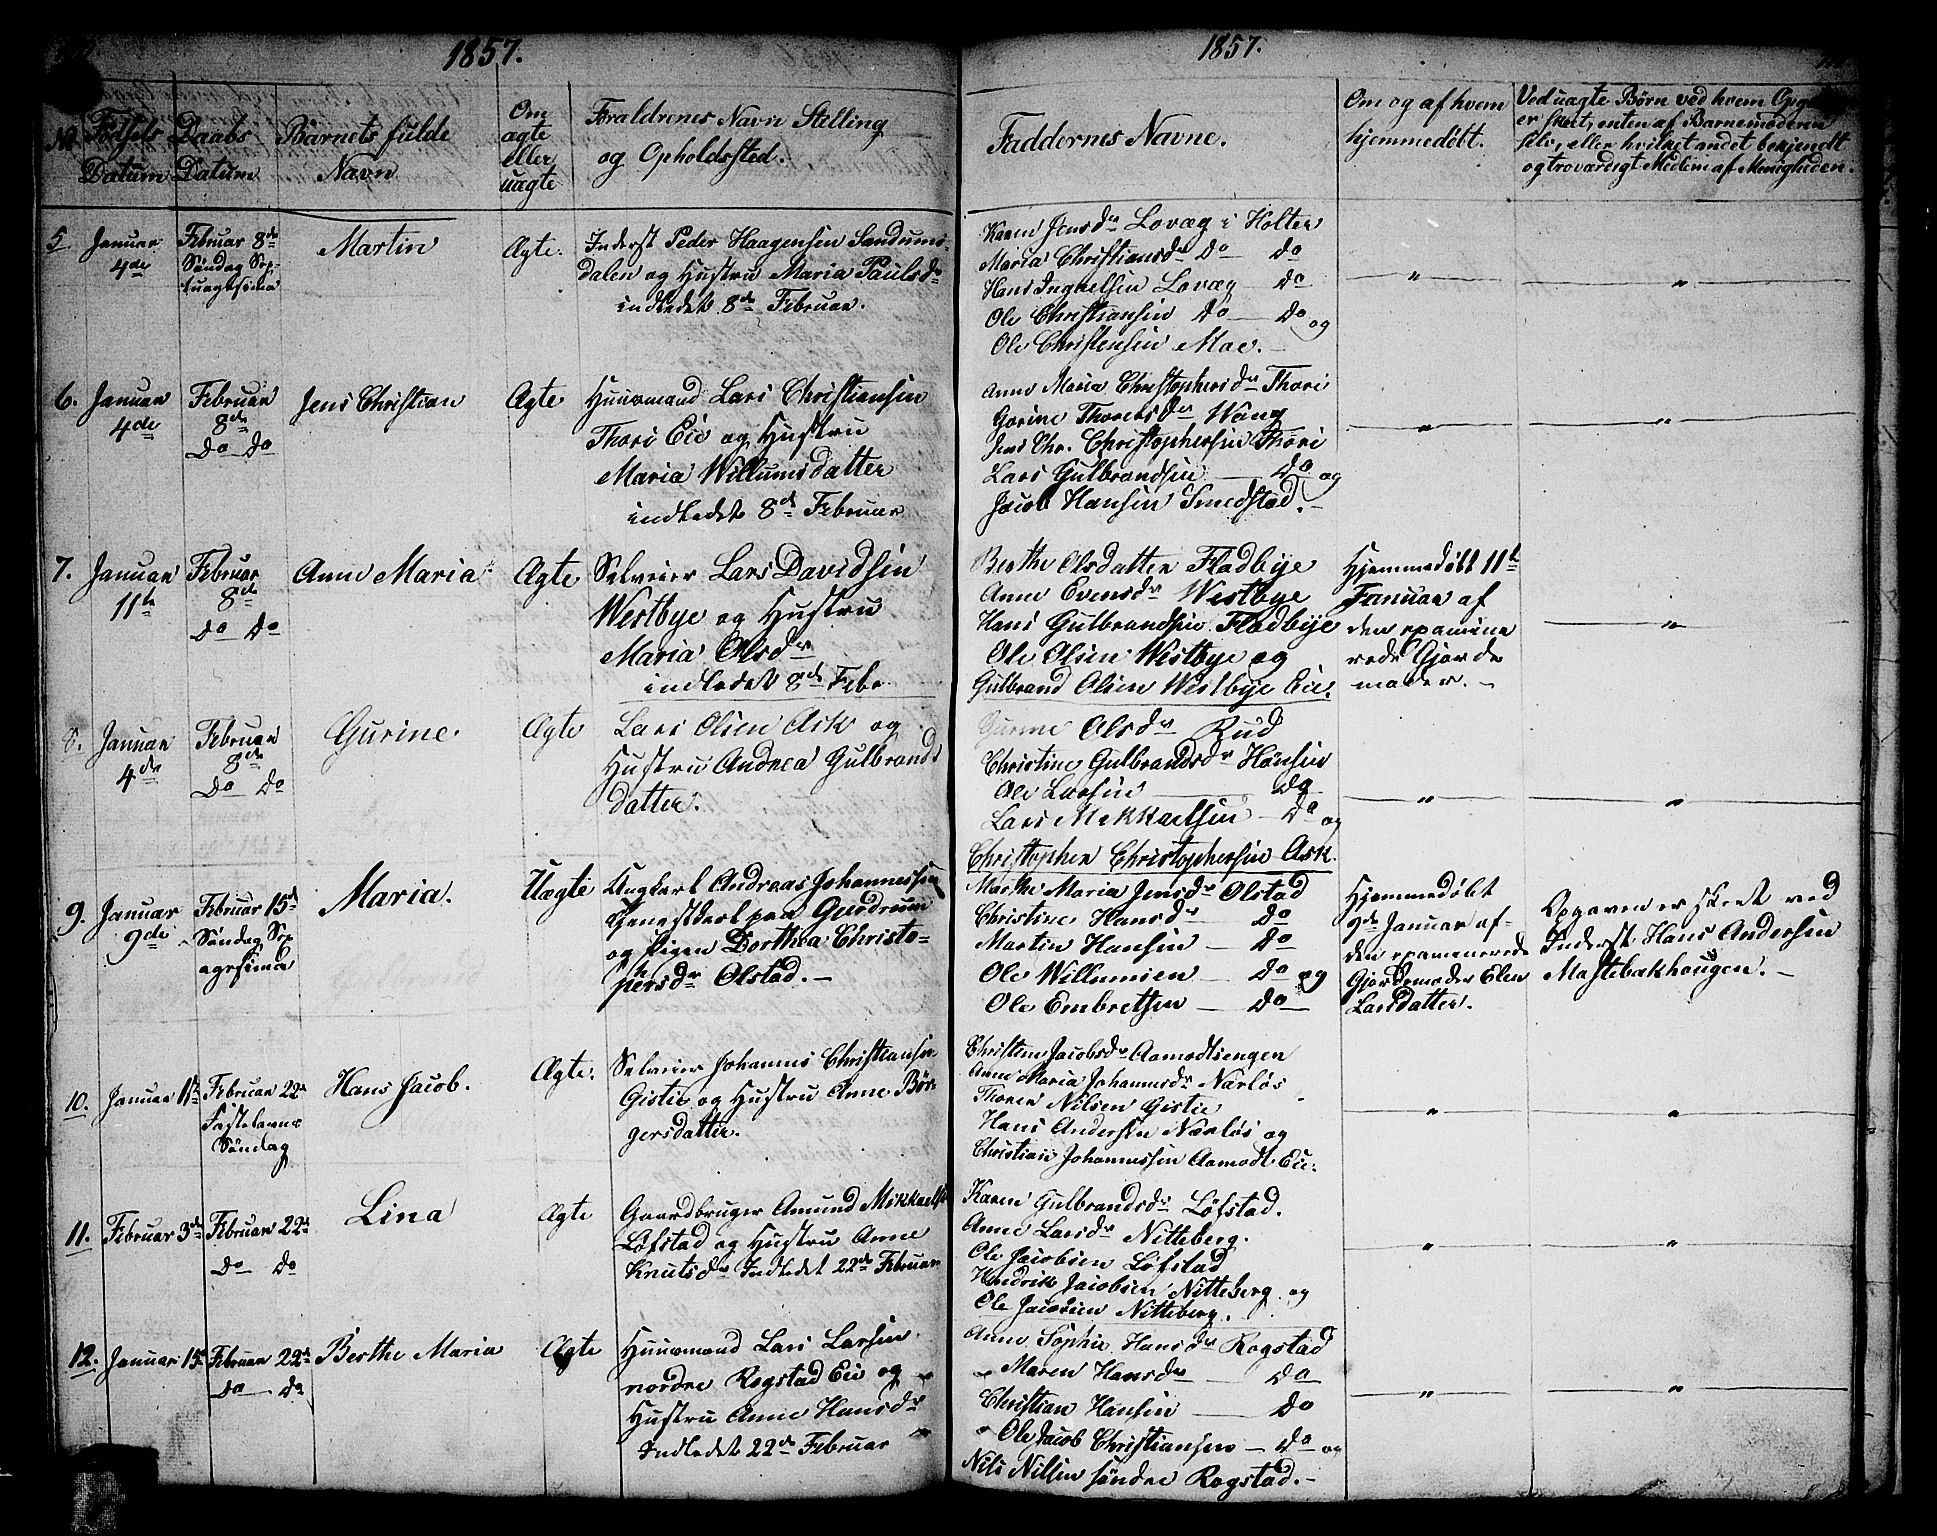 1857.
1857.
No Fødsels Datum
Daabs Datum
Barnets fulde Navn
Om ægte eller uægte
Forældrenes Navn Stelling og Opholdssted.
Faddernes Navne.
Om og af hvem hjemmedøbt.
Ved uægte Børn ved hvem Opga
er skeet, enten af Barnemoderen
selv, eller hvilket andet bekjendt
og troværdigt Medlem af Menigheden.
5. Januar
4de
Februar 8de
Søndag Sep-
tuagesima
Martin
Ægte.
Inderst Peder Haagensen Sandums-
dalen og Hustru Maria Paulsdr
indledet 8de Februar.
Karen Jensdr Lovæg i Holter
Maria Christiansdr Do Do
Hans Ingvelsen Lovæg Do
Ole Christiansen Do Do og
Ole Christensen Moe.
"
"
6. Januar
4de
Februar
8de
Do Do
Jens Christian
Ægte
Huusmand Lars Christiansen
Thori Eie og Hustru
Maria Willumsdatter
indledet 8de Februar
Anne Maria Christophersdr Thori
Gorine Thoresdr Wang
Jens Chr. Christophersen Thori
Lars Gulbrandsen Do og
Jacob Hansen Smedstad.
"
"
7. Januar
11te
Februar
8de
Do Do
Anne Maria
Ægte
Selveier Lars Davidsen
Westbye og Hustru
Maria Olsdr
indledet 8de Febr.
Berthe Olsdatter Fladbye
Anne Evensdr Westbye
Hans Gulbrandsen Fladbye
Ole Olsen Westbye og
Gulbrand Olsen Westbye Eie.
Hjemmedøbt 11te
Januar af
den examine
rede Gjorde
moder.
"
8. Januar
4de
Februar
8de
Do Do
Gurine.
Ægte
Lars Olsen Ask og
Hustru Andrea Gulbrands
datter.
Gurine Olsdr Rud
Christine Gulbrandsdr Hønsen
Ole Larsen Do
Lars Mikkaelsen Do og
Christopher Christophersen Ask.
"
"
9. Januar
9de
Februar 15de
Søndag Sex
agesima
Maria.
Uægte
Ungkarl Andreas Johannessen
tjenestkarl paa Gjødrum
og Pigen Dorthea Christo-
phersdr Olstad.
Marthe Maria Jensdr Olstad
Christine Hansdr Do
Martin Hansen Do
Ole Willumsen Do og
Ole Embretsen Do
Hjemmedøbt
9de Januar af
den examenerede
Gjordemoder Elen
Larsdatter.
Opgaven er skeet ved
Inderst Hans Andersen
Mastebakhougen.
10. Januar 11te
Februar 22de
Fastelavns
Søndag
Hans Jacob.
Ægte.
Selveier Johannes Christiansen
Gistie og Hustru Anne Bør-
gersdatter.
Christine Jacobsdr Aamodtsengen
Anne Maria Johannesdr Nærløs
Thorer Nilsen Gistie
Hans Andersen Nærløs og
Christian Johannessen Aamodt Eie.
"
"
11. Februar 3de
Februar 22de
Do Do
Lina
Ægte
Gaardbruger Amund Mikkaels
Løfstad og Hustru Anne
Knutsdr Indledet 22de Februar
Karen Gulbrandsdr Løfstad.
Anne Larsdr Nitteberg.
Ole Jacobsen Løfstad
Hendrik Jacobsen Nitteberg og
Ole Jacobsen Nitteberg.
"
"
12. Januar 15de
Februar 22de
Do Do
Berthe Maria
Ægte
Huusmand Lars Larsen
nordre Rogstad Eie og
Hustru Anne Hansdr
Indledet 22de Februar
Anne Sophie Hansdr Rogstad
Maren Hansdr Do
Christian Hansen Do
Ole Jacob Christiansen Do og
Nils Nilsen søndre Rogstad.
"
"